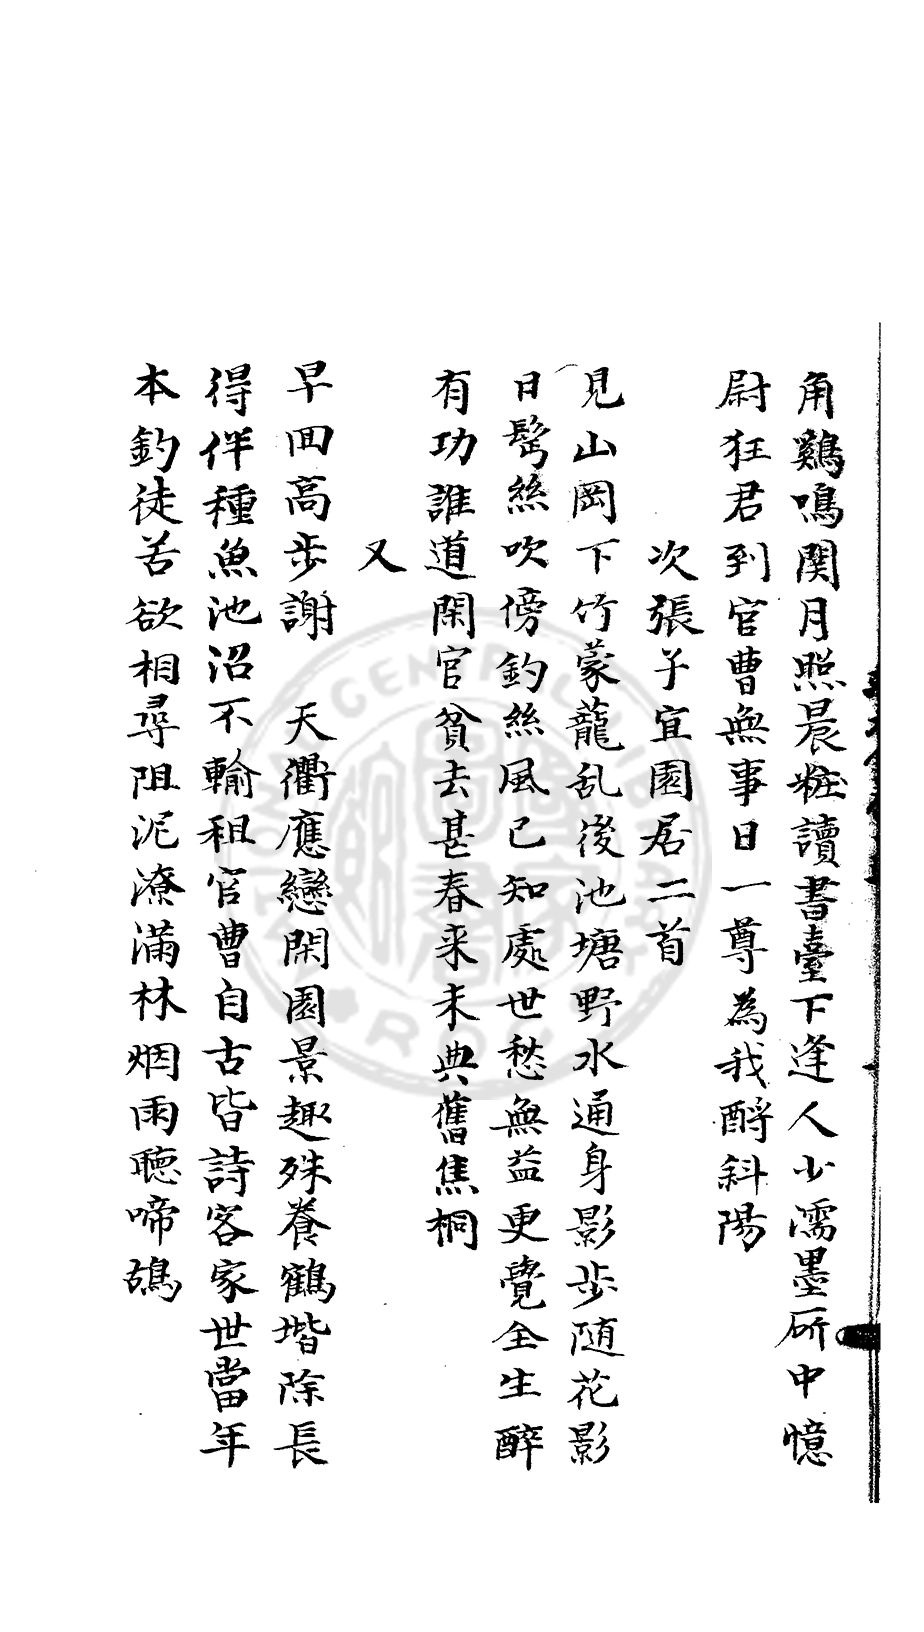 角鷄鳴関月照晨粧讀書臺下逢人少濡墨斫中憶
尉狂君到官曹無事日一尊為我酹斜陽
次張子宜園居二首
見山岡下竹蒙蘢乱後池塘野水通身影步随花影
日髩絲吹傍釣絲風已知處世愁無益更覺全生醉
有功誰道閑官貧去甚春来未典舊焦桐
又
早囬高步謝 天衢應戀閑園景趣殊養鶴堦除長
得伴種魚池沼不輸租官曹自古皆詩客家世當年
本釣徒苦欲相尋阻泥潦滿林烟雨聴啼鴣